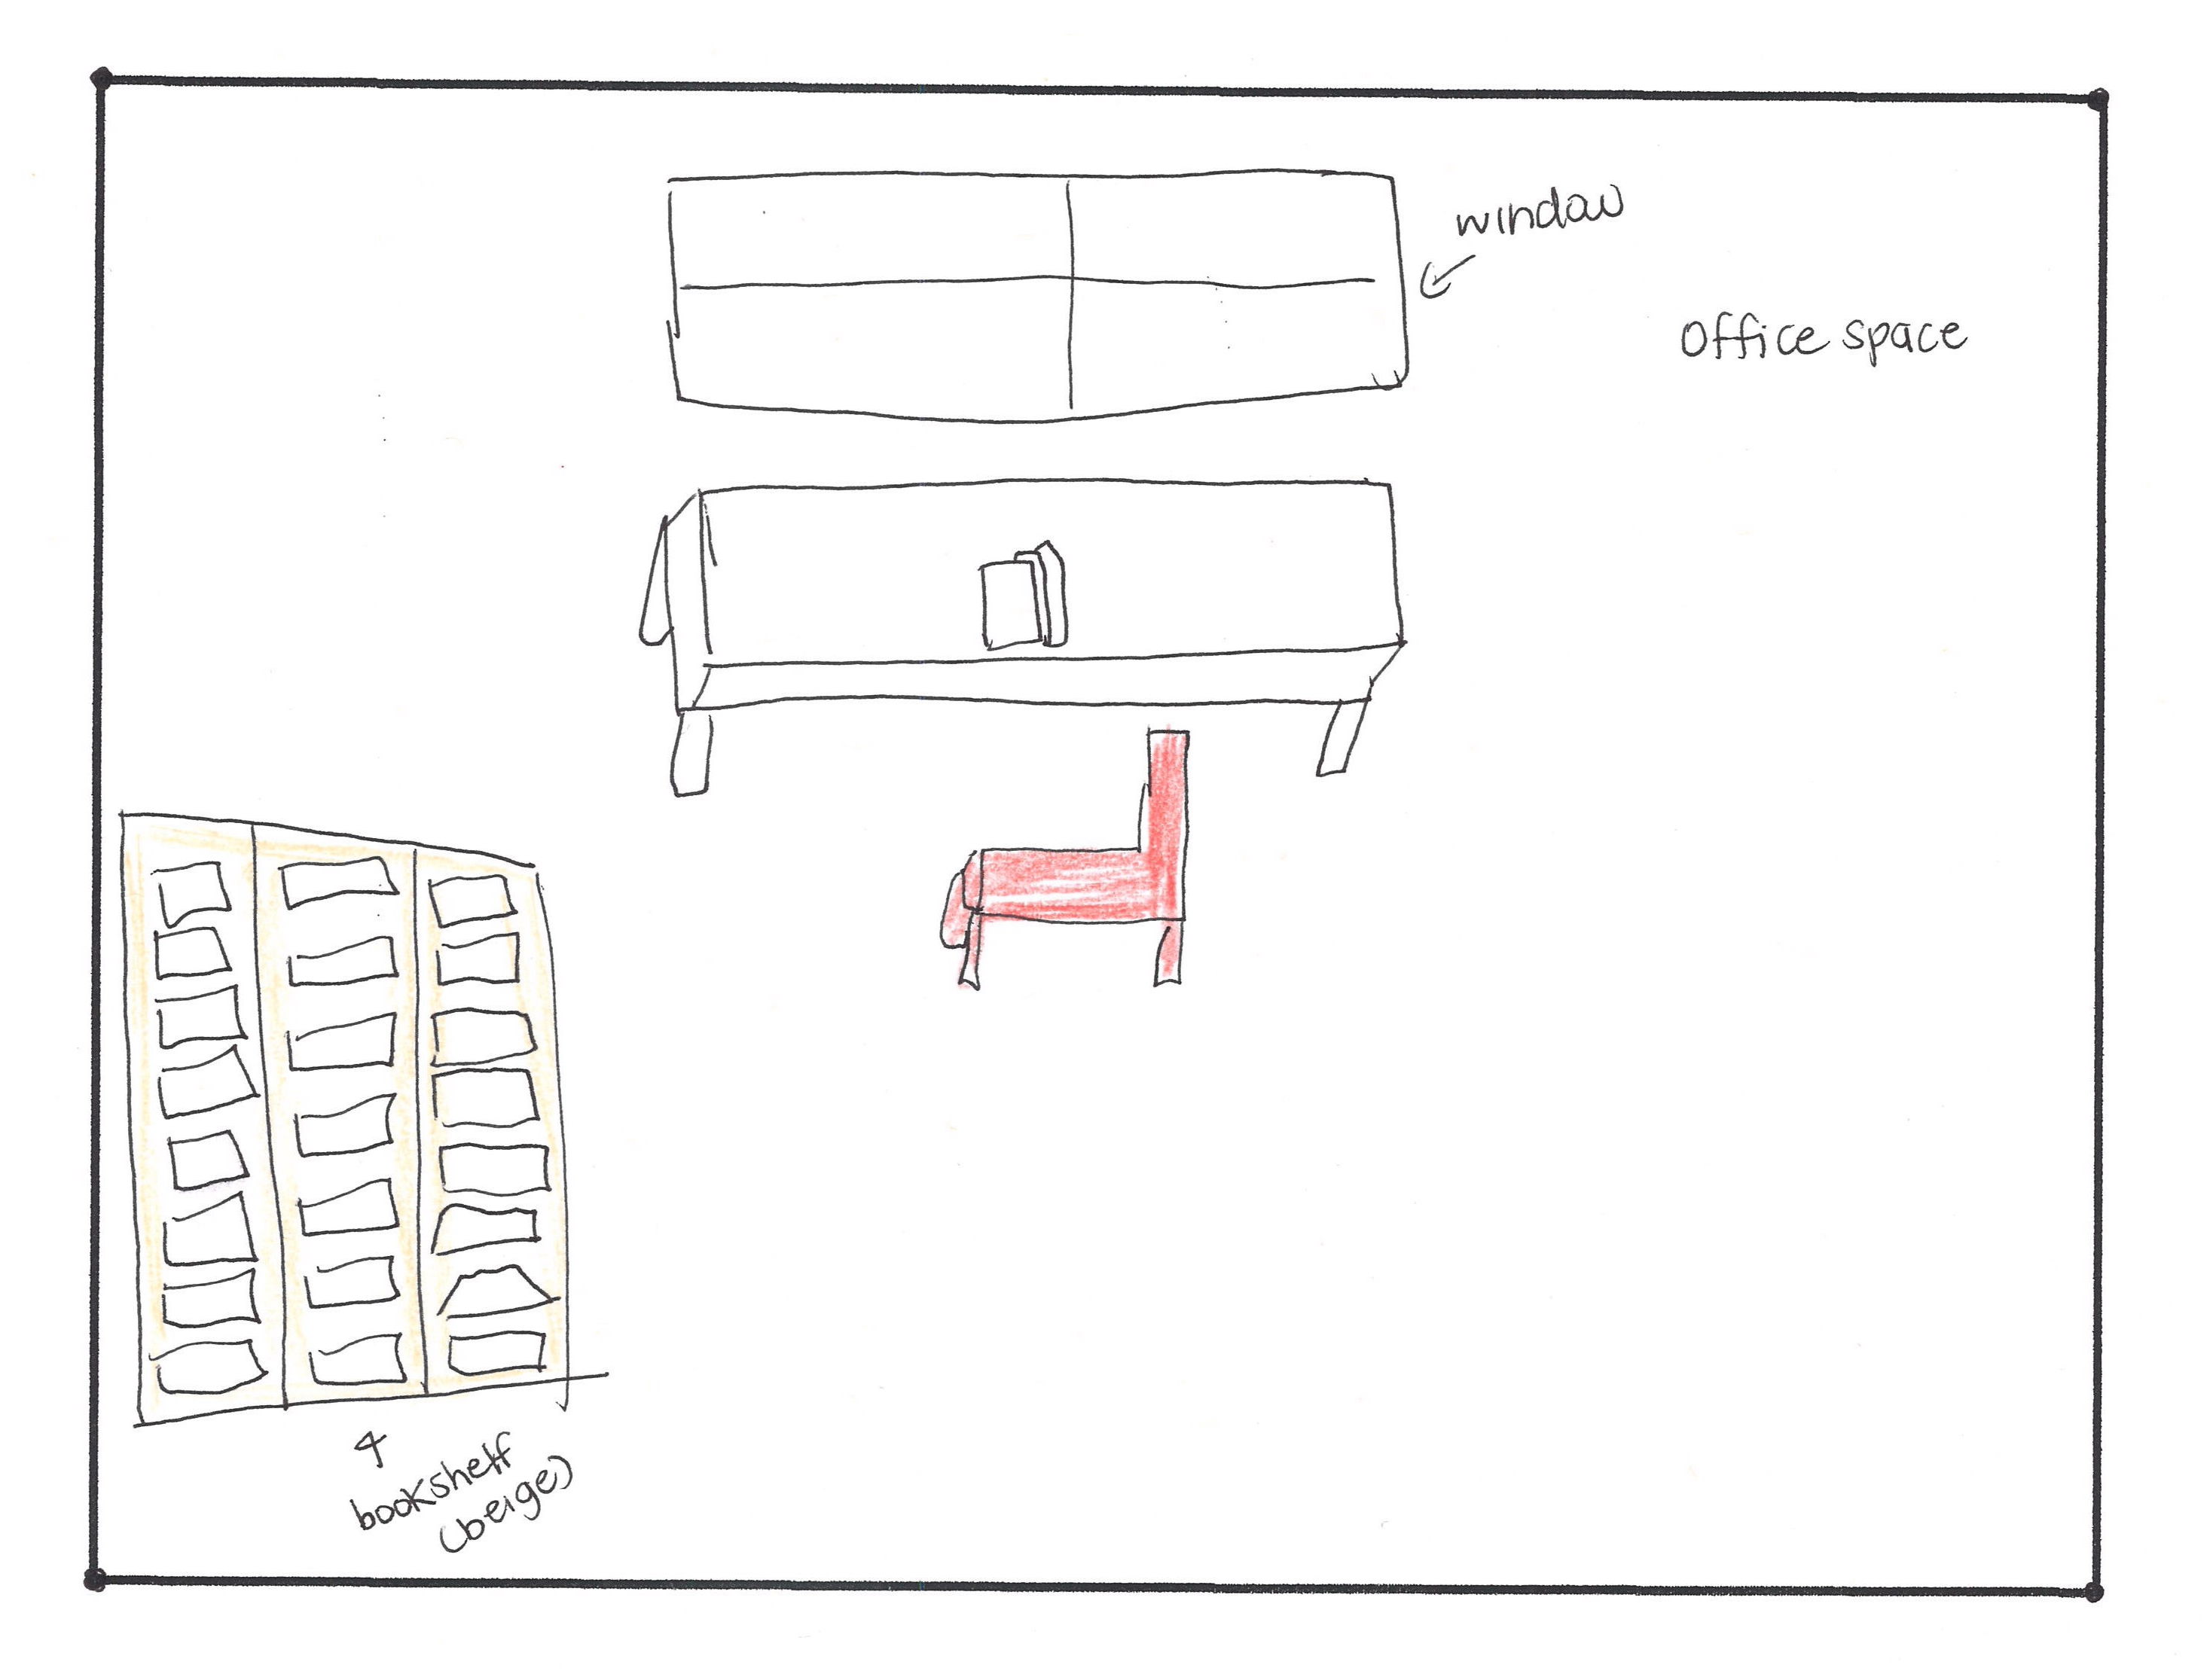 window
office space
bookshelf
(beige)